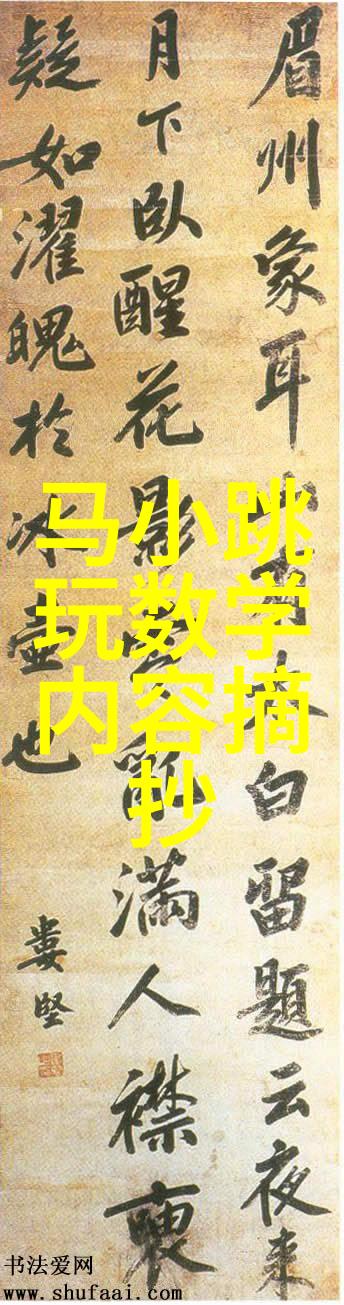 眉州象耳白留題云夜來
月下臥醒花影亂滿人襟
疑如濯魄於冰壺也
婁堅
马小跳
玩数学
内容摘
抄
书法爱网
www.shufaai.com